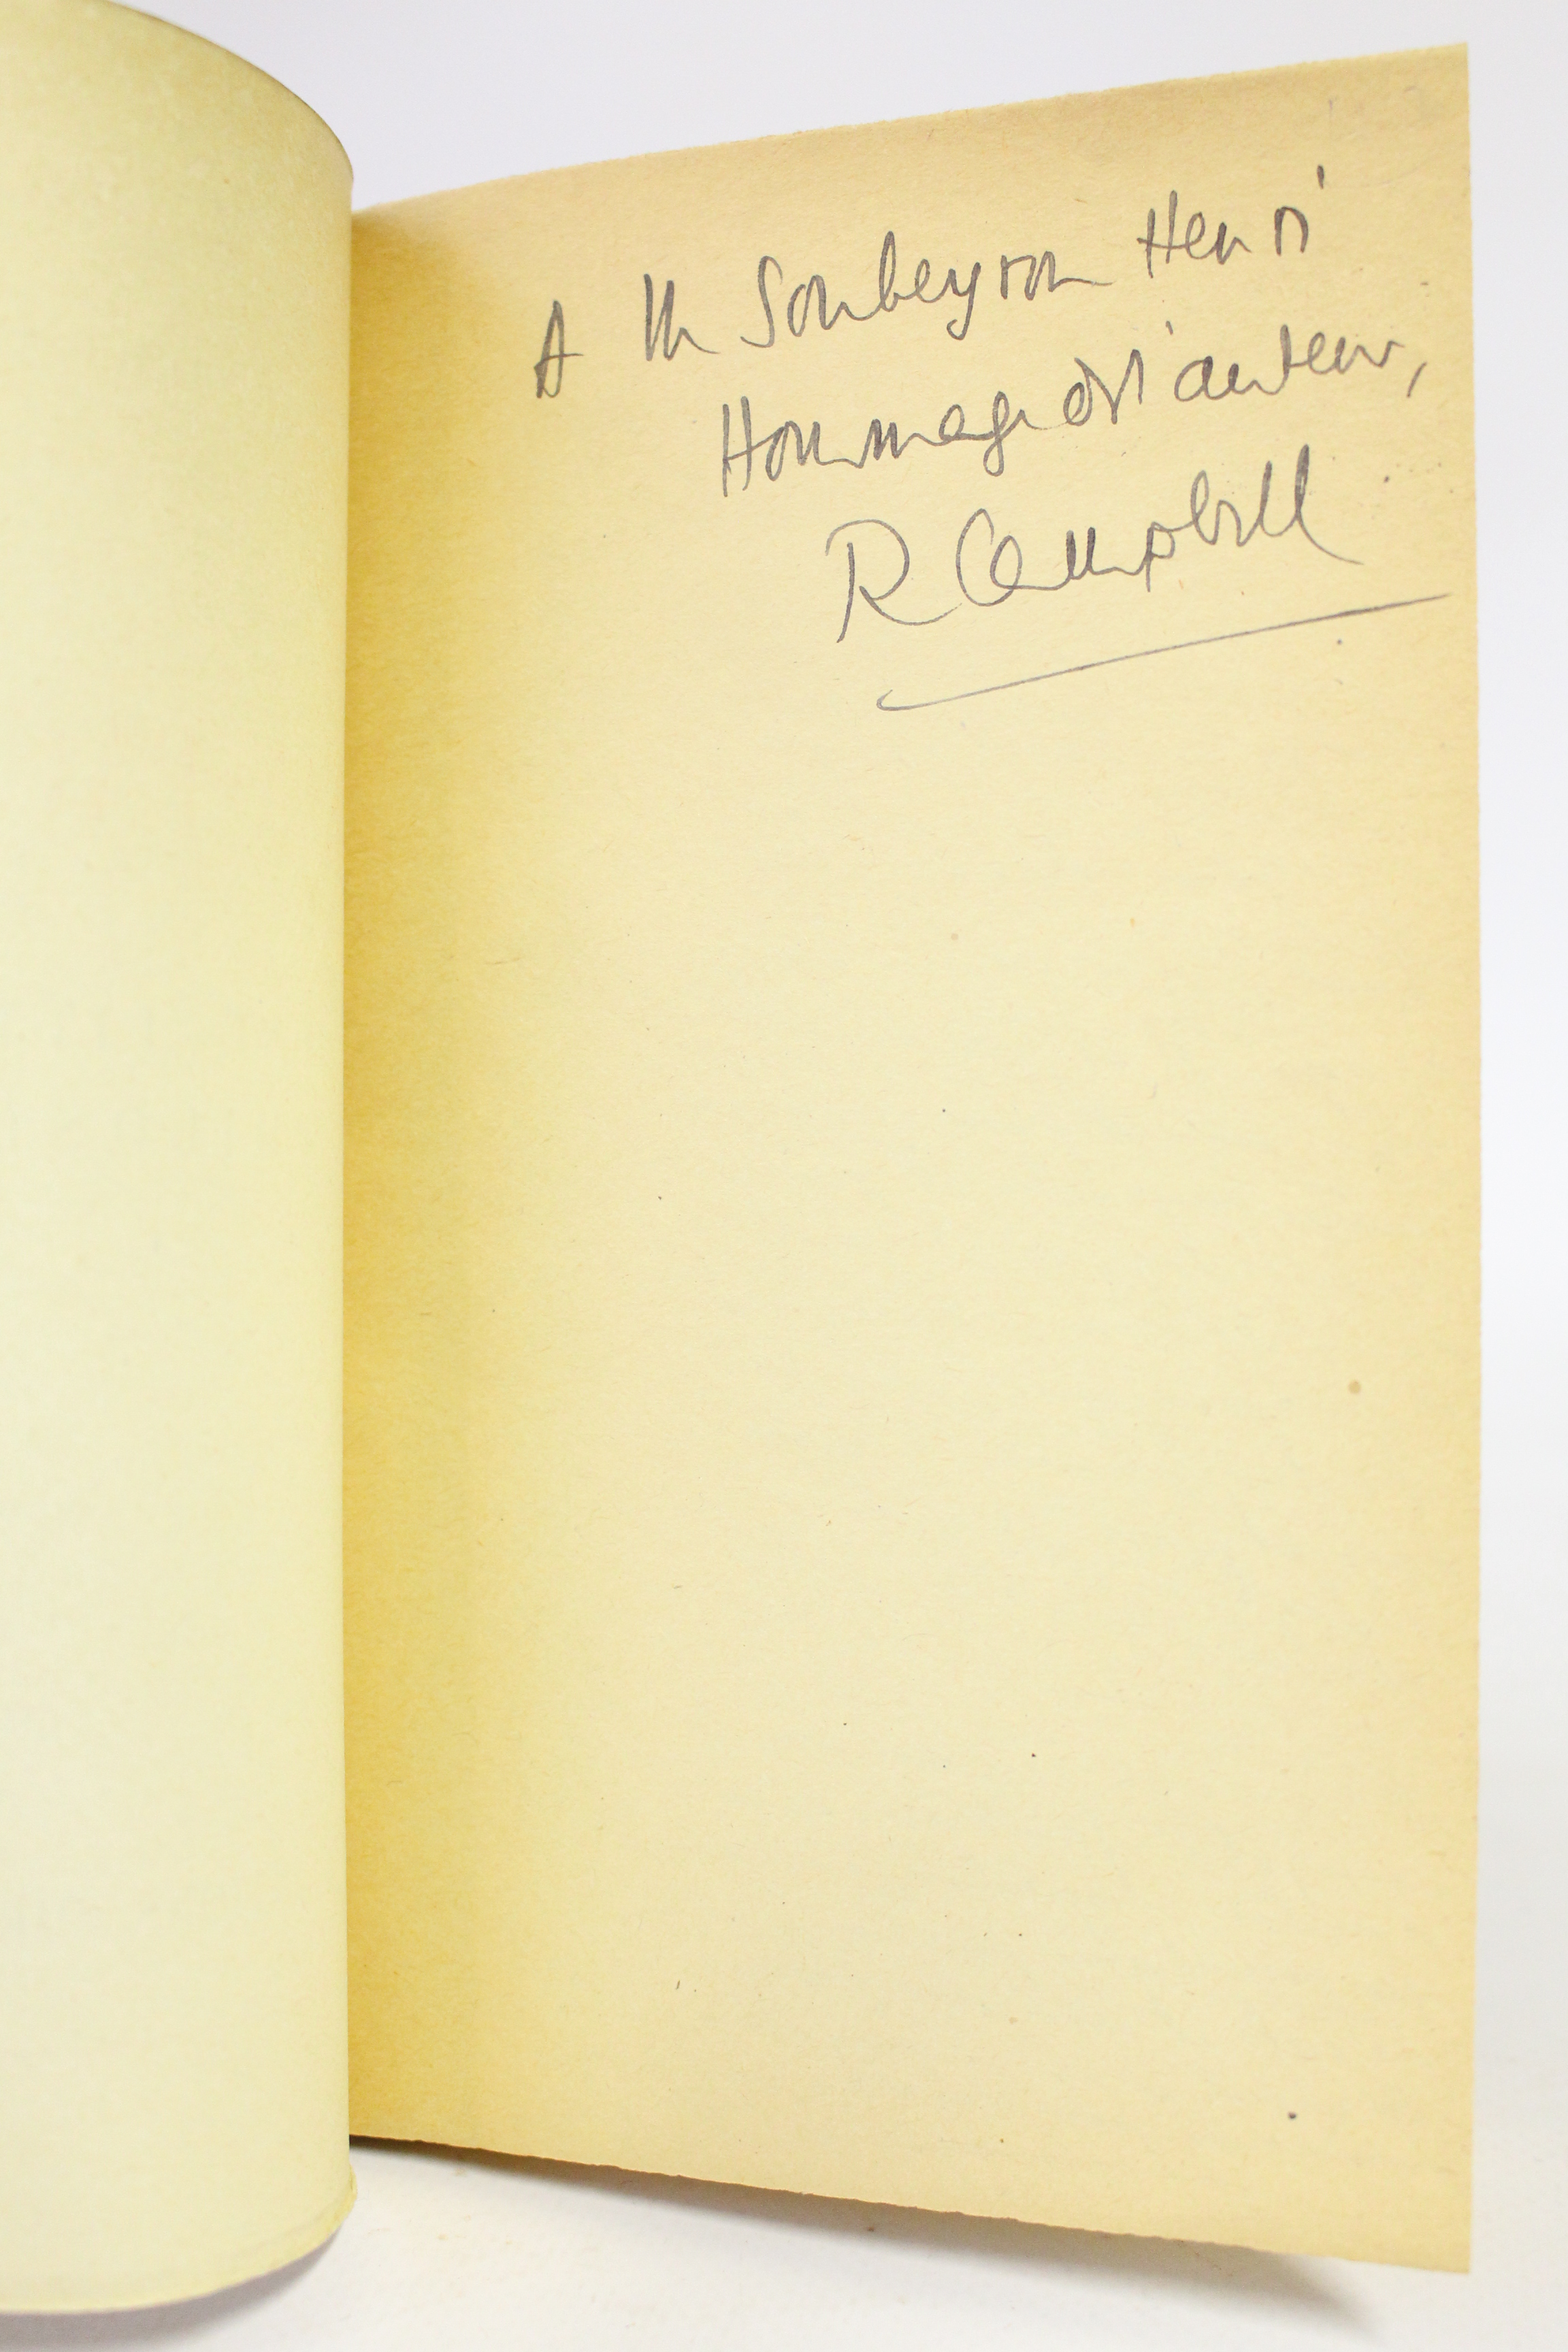 A M Soubeyran Henri
Hommage de l'auteur,
R Campbell